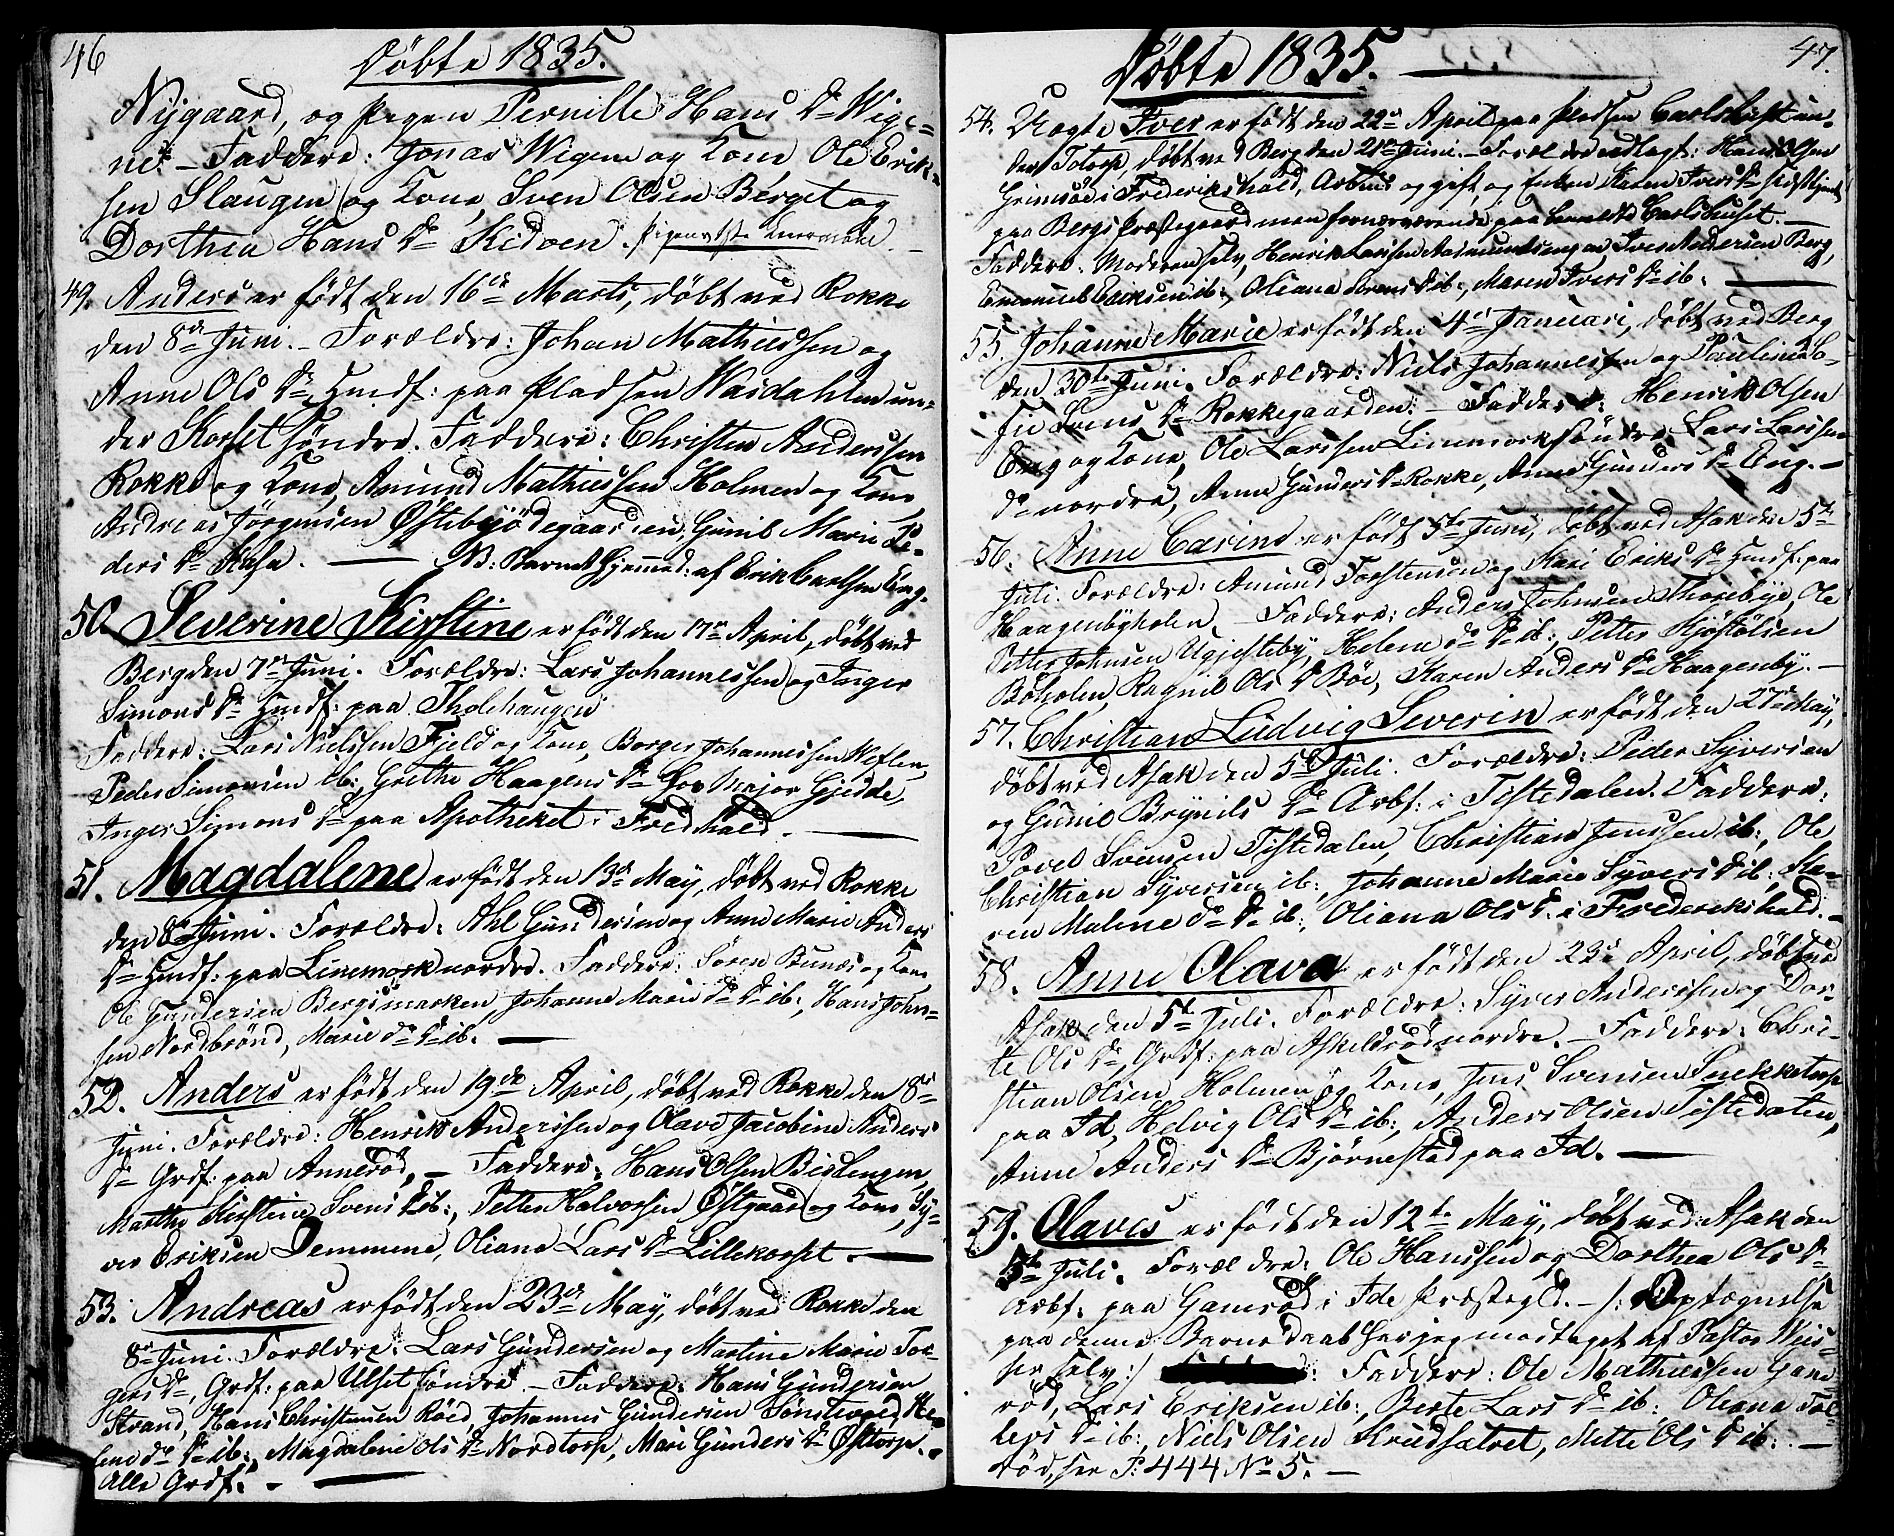 46
Döbte 1835.
Nygaard, og Pigen Pernille Hans Dr Wige=
ne. – Faddere: Jonas Wigene og Kone Ole Erik-
sen Slaugen og Kone, Sven Olsen Berget og
Dorthea Hans Dr Kidoen.
49. Anders er födt den 16de Marts, döbt ved Rokke
den 8de Juni. – Forældre: Johan Mathiessen og
Anne Ols Dr Hmdf: paa Pladsen Wasdahlen un-
der Korset söndre. Faddere: Christen Anderssen
Rokke og Kone, Amund Mathiessen Holmen og Kone
Andreas Jörgensen Östebyödegaarden, Gunil Marie Pe-
ders Dr Kasa. – NB: Barnet hjemmed: af Erik Carlsen Eng.
50. Severine Kirstine er födt den 17de April, döbt ved
Berg den 7de Juni. Forældre: Lars Johannessen og Inger
Simons Dr Hmdf: paa Tholehaugen
Faddere: Lars Nielssen Fjeld og Kone, Borger Johannessen
Peder Simonsen ib:, Grethe Haagens Dr hos Major Gjedde,
Inger Simons Dr paa Apotheket i Fredhald. –
51. Magdalene er födt den 13de May, döbt ved Rokke
den 8de Juni. Forældre: Abl Gundersen og Anne Marie Anders
Dr Hmdf: paa Linemork nordre. Faddere: Sören Bunæs og Kone
Ole Gundersen Bergsmarken, Johanne Marie do Dr ib:, Hans John-
sen Nordbrönd, Marie do Dr ib. –
52. Anders er födt den 19de April, döbt ved Rokke den 8de
Juni. Forældre: Henrik Anderssen og Olave Jacobine Anders
Dr Grdf: paa Anneröd, – Faddere: Hans Olsen Bislengen,
Marthe Kirstine Svens Dr ib:, Petter Halvorsen Östgaard og Kone, Sy-
ver Eriksen Demmene, Oliane Lars Dr Lillekorset. –
53. Andreas er födt den 23de May, döbt ved Rokke den
8de Juni. Forældre: Lars Gundersen og Martine Marie Tor-
gers Dr, Grdf: paa Ulset söndre. – Faddere: Hans Gundersen
Strand, Hans Christensen Röed, Johannes Gundersen Tönsleröd, He-
lene do Dr ib:, Magdalene Ols Dr Nordtorp, Mari Gunders Dr Östtorp.
Alle Grdf. –
47.
Döbte 1835. –
54. Uægte Iver er födt den 22de April paa Pladsen Carlshuset un-
der Totorp, döbt ved Berg den 21de Juni. – Forældre udlagt: Hans Olsen
Grimsöe i Frederikshald, Arbmd og gift, og Enken Karen Ivers Dr sidst tjent
paa Bergs Præstegaard men fornærværende paa bemeldte Carlshuset. –
Faddere: Moderen selv, Henrik Larssen Aasmundsengen, Iver Andersen Berg,
Emanuel Erichsen ib:, Oliana Svens Dr ib:, Maren Ivers Dr ib: –
55. Johanne Marie er födt den 4de Januari, döbt ved Berg
den 30te Juni. Forældre: Niels Johannessen og Pauline So-
fie Svens Dr Rokkegaarden. – Faddere: Henrik Olsen
Eng og Kone, Ole Larssen Linemork söndre, Lars Larssen
do nordre, Anne Gunders Dr Rokke, Anne Gunders Dr Eng. –
56. Anne Carine er födt 5te Juni, döbt ved Asak den 5te
Juli. Forældre: Amund Torstensen og Mari Eriks Dr Hmdf: paa
Haagenbyholen. – Faddere: Anders Johnsen Thorebye, Ole
Petter Johnsen Ugjesteby, Helene do Dr ib:, Petter Kjöstölsen
Böholen, Ragnil Ols Dr Böe, Karen Anders Dr Haagenby. –
57. Christian Ludvig Severin er födt den 27de May,
döbt ved Asak den 5te Juli. Forældre: Peder Syversen
og Gunil Brynils Dr Arbf: i Tistedalen. Faddere:
Povel Svensen Tistedalen, Christian Jenssen ib:, Ole
Christian Syversen ib:, Johanne Marie Syvers Dr ib:, Ka-
ren Malene do Dr ib:, Oliana Ols Dr i Frederikshald. –
58. Anne Olava er födt den 23de April, döbt ved
Asak den 5te Juli. Forældre: Syver Anderssen og Dor-
te Ols Dr, Grdf: paa Askeldsröd nordre. – Faddere: Chri-
stian Olsen Holmen og Kone, Jens Svensen Snekketorp
paa Id, Helvig Ols Dr ib:, Anders Olsen Tistedalen,
Anne Anders Dr Björnestad paa Id. –
59. Olaves er födt den 12te May, döbt ved Asak den
5te Juli. Forældre: Ole Hanssen og Dorthea Ols Dr
Arbf: paa Gamröd i Idde Præstegd. – /: Optegnelse
paa denne Barnedaab har jeg modtaget af Pastor Weis-
ser selv :/ Faddere: Ole Mathiessen Gam-
röd, Lars Eriksen ib:, Berte Lars Dr ib: Oliana Tol-
leps Dr ib:, Niels Olsen Krudsætret, Mette Ols Dr ib: –
död, see P: 444 No 5. –